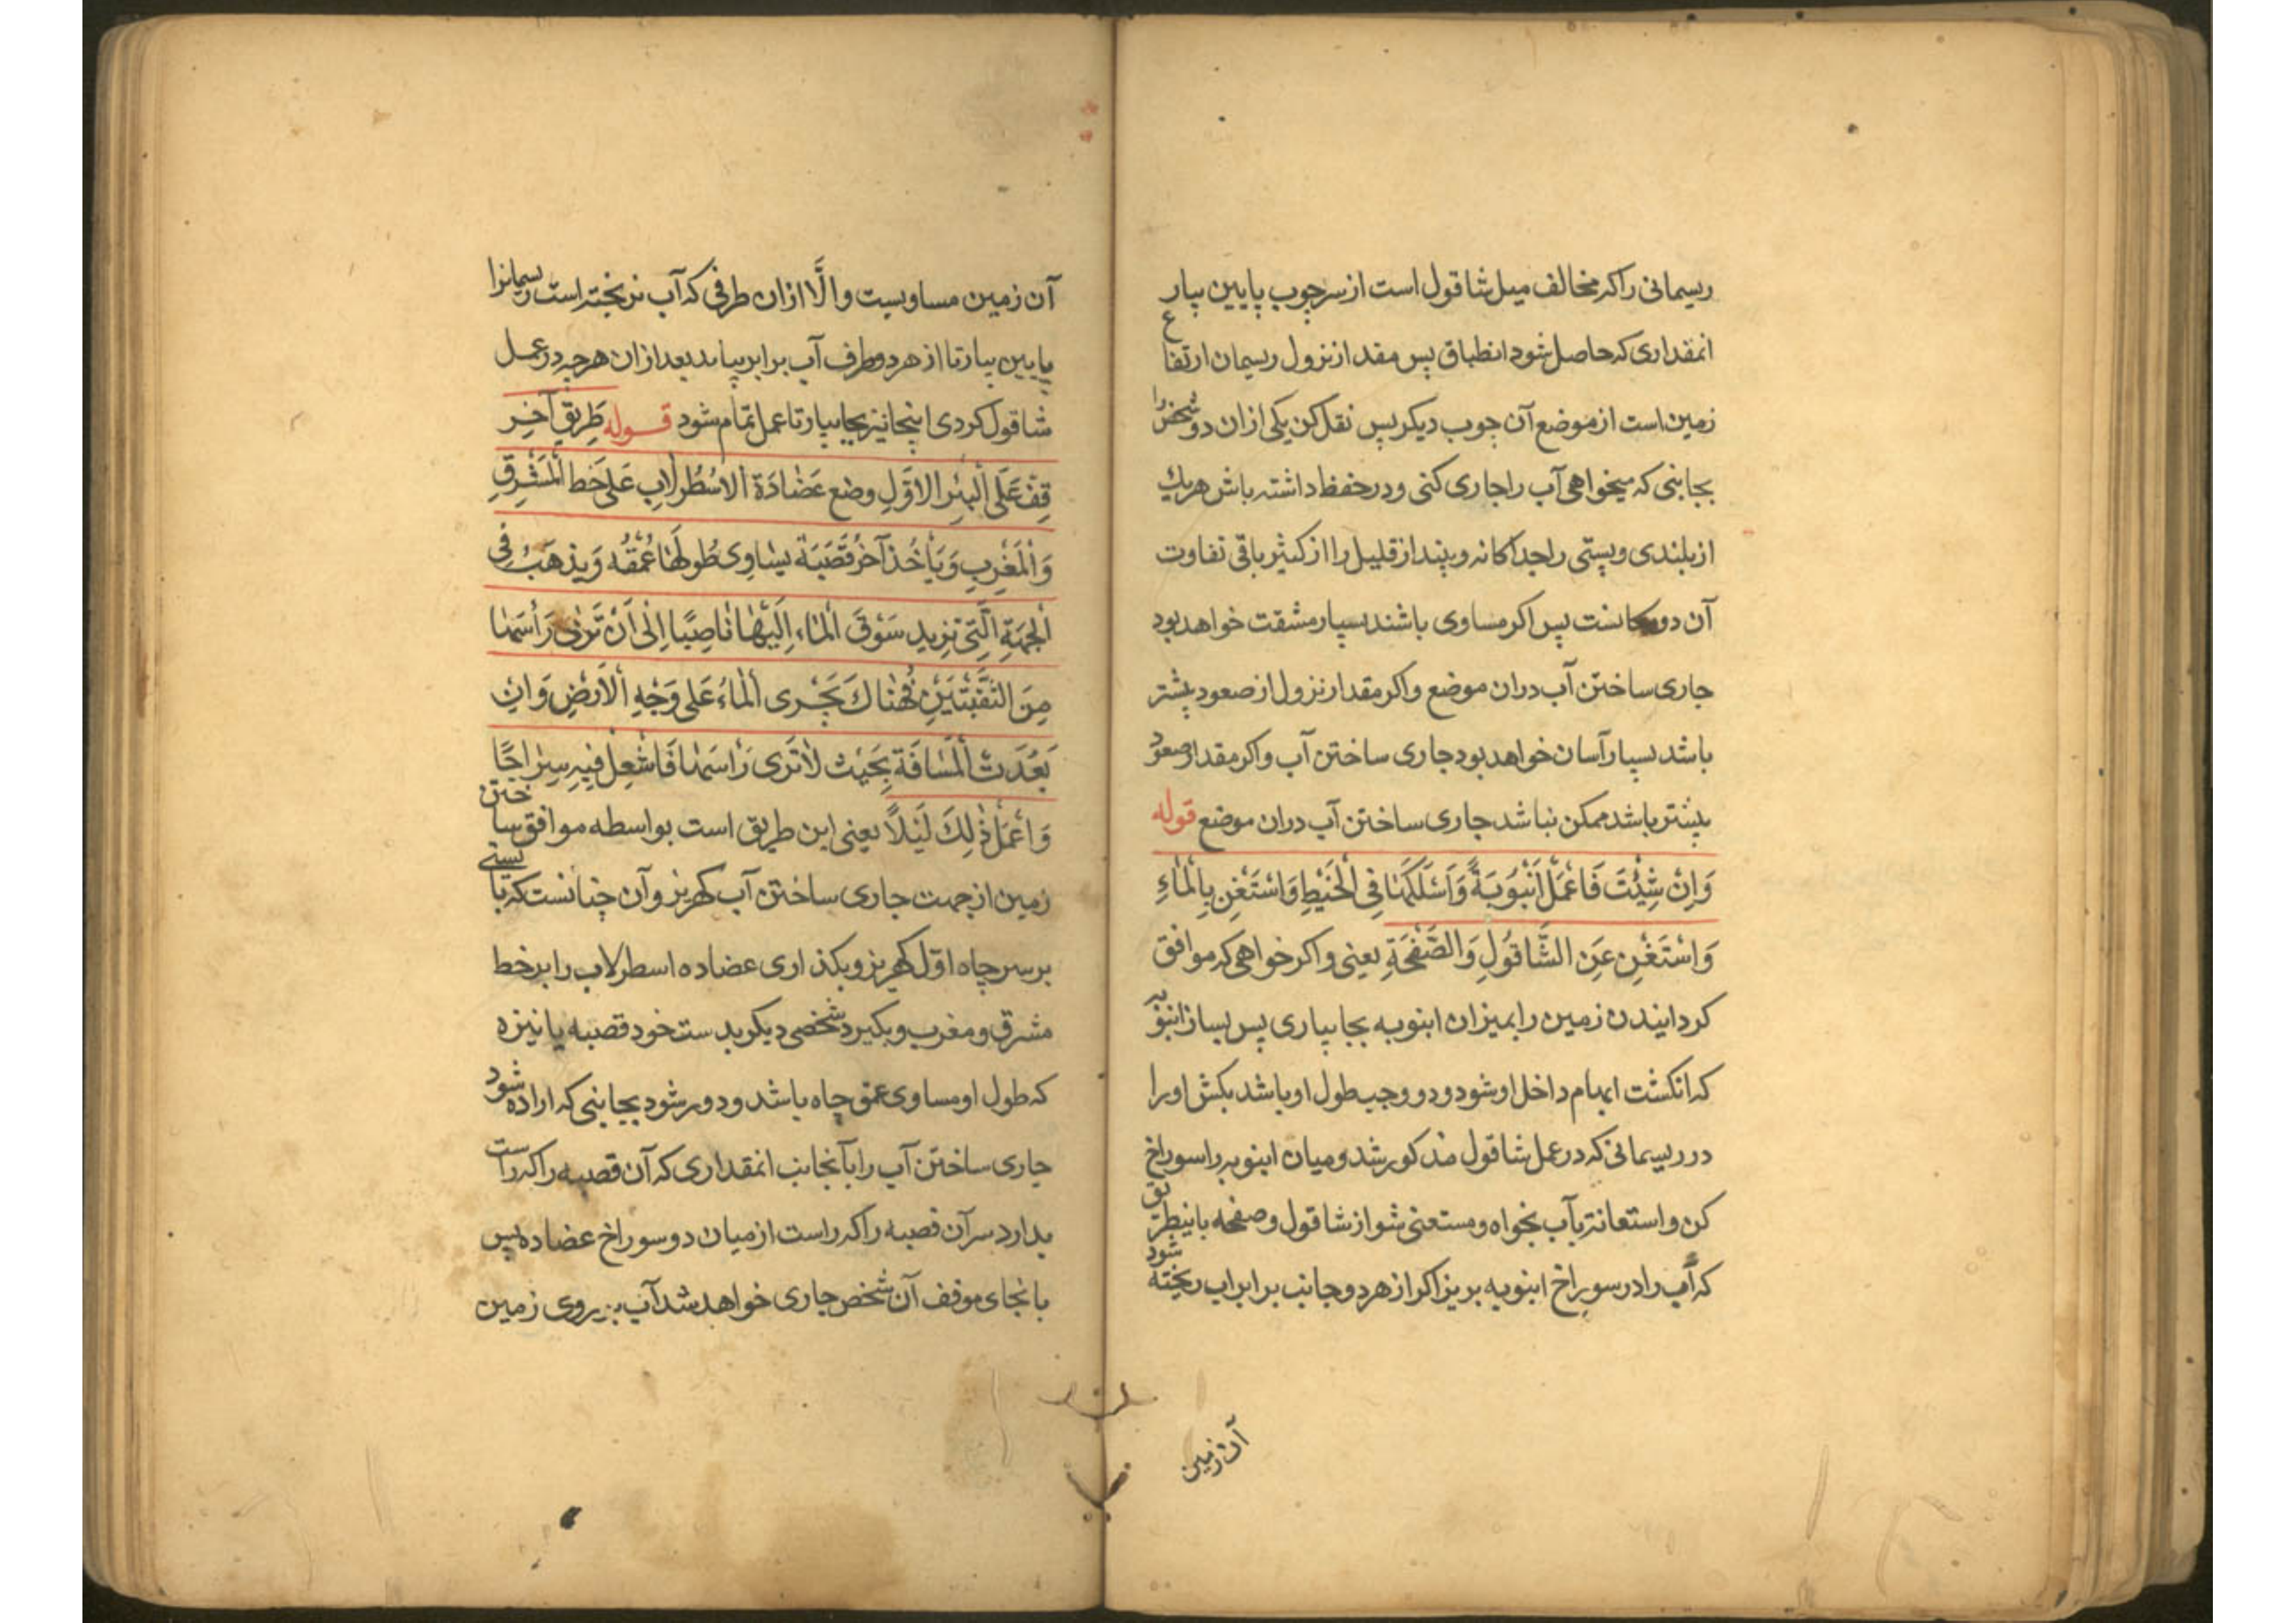 ریسمانی را که مخالف میل شاقول است از سر چوب پایین بیار
انمقداری که حاصل شود انطباق پس مقدار نزول ریسمان ارتفاع
زمین است از موضع آن چوب دیگر پس نقل کن یکی از ان دو شخص را
بجانبی که میخواهی آب را جاری کنی و در حفظ داشته باش هریک
از بلندی و پستی را جداکانه و بینداز قلیل را از کثیر باقی تفاوت
آن دو مکانست پس اکر مساوی باشند بسیار مشقت خواهد بود
جاری ساختن آب دران موضع و اکر مقدار نزول از صعود بیشتر
باشد بسیار آسان خواهد بود جاری ساختن آب و اکر مقدار صعود
بیشتر باشد ممکن نباشد جاری ساختن آب دران موضع قوله
وَاِنْ شِئْتَ فَاعْمَلْ اَنْبُوبَةً وَاَسْلَکهَا فِی الْخَیْطِ وَاسْتَغْنِ بِالْمَاءِ
وَاسْتَغْنِ عَنِ الشَّاقُولِ وَالصَّفْحَةِ یعنی و اکر خواهی که موافق
کردانیدن زمین را بمیزان انبوبه بجا بیاری پس بساز انبوبه
که انکشت ابهام داخل او شود و دو وجب طول او باشد بکش او را
در ریسمانی که در عمل شاقول مذکور شد و میان انبوبه را سوراخ
کن و استعانة بآب بخواه و مستعنی شو از شاقول و صفحه باینطریق
که آب را در سوراخ انبوبه بریز اکر از هر دو جانب برابر اب ریخته شود
آن زمین
آن زمین مساویست و الَّا ازان طرفی که آب نریخته است ریسمانرا
پایین بیار تا از هر دو طرف آب برابر بیاید بعد ازان هرچه در عمل
شاقول کردی اینجا نیز بجا بیار تا عمل تمام شود قوله طَرِیقٌ آخَر
قِفْ عَلَی الْبِئْرِ الاوَّلِ وضع عَضَادَة الاسْطُرلابِ عَلی خَط الْمَشْرِقِ
وَالْمَغْرِبِ وَیَأْخُذ آخَرُ قَصَبَة یسَاوِی طُولهَا عُمْقُه وَیذهَبُ فِی
الْجِهَةِ الَّتِی تزِید سَوْقَ الْمَاءِ اِلَیْهَا نَاصِبًا اِلٰی اَنْ تَرٰی رَأْسَهَا
مِنَ الثَّقْبَتَیْنِ فَهُنَاكَ یَجْرِی الْمَاءُ عَلی وَجْهِ الْاَرْضِ وَاِنْ
بَعُدَتْ الْمَسَافَة بِحَیْث لَا تَرَی رَأسَهَا فَاشْعِلْ فِیهِ سِرَاجًا
وَاعْمَلْ ذٰلِكَ لَیْلًا یعنی این طریق است بواسطه موافق ساختن
زمین از جهت جاری ساختن آب کهریز و آن چنانست که بایستی
بر سر چاه اوّل کهریز و بکذاری عضاده اسطرلاب را بر خط
مشرق و مغرب و بکیرد شخصی دیکر بدست خود قصبه یا نیزه
که طول او مساوی عمق چاه باشد و دور شود بجانبی که اراده شود
جاری ساختن آب را بآنجانب انمقداری که آن قصبه را که راست
بدارد سر آن قصبه را که راست از میان دو سوراخ عضاده پس
بانجای موقف آن شخص جاری خواهد شد آب بر روی زمین